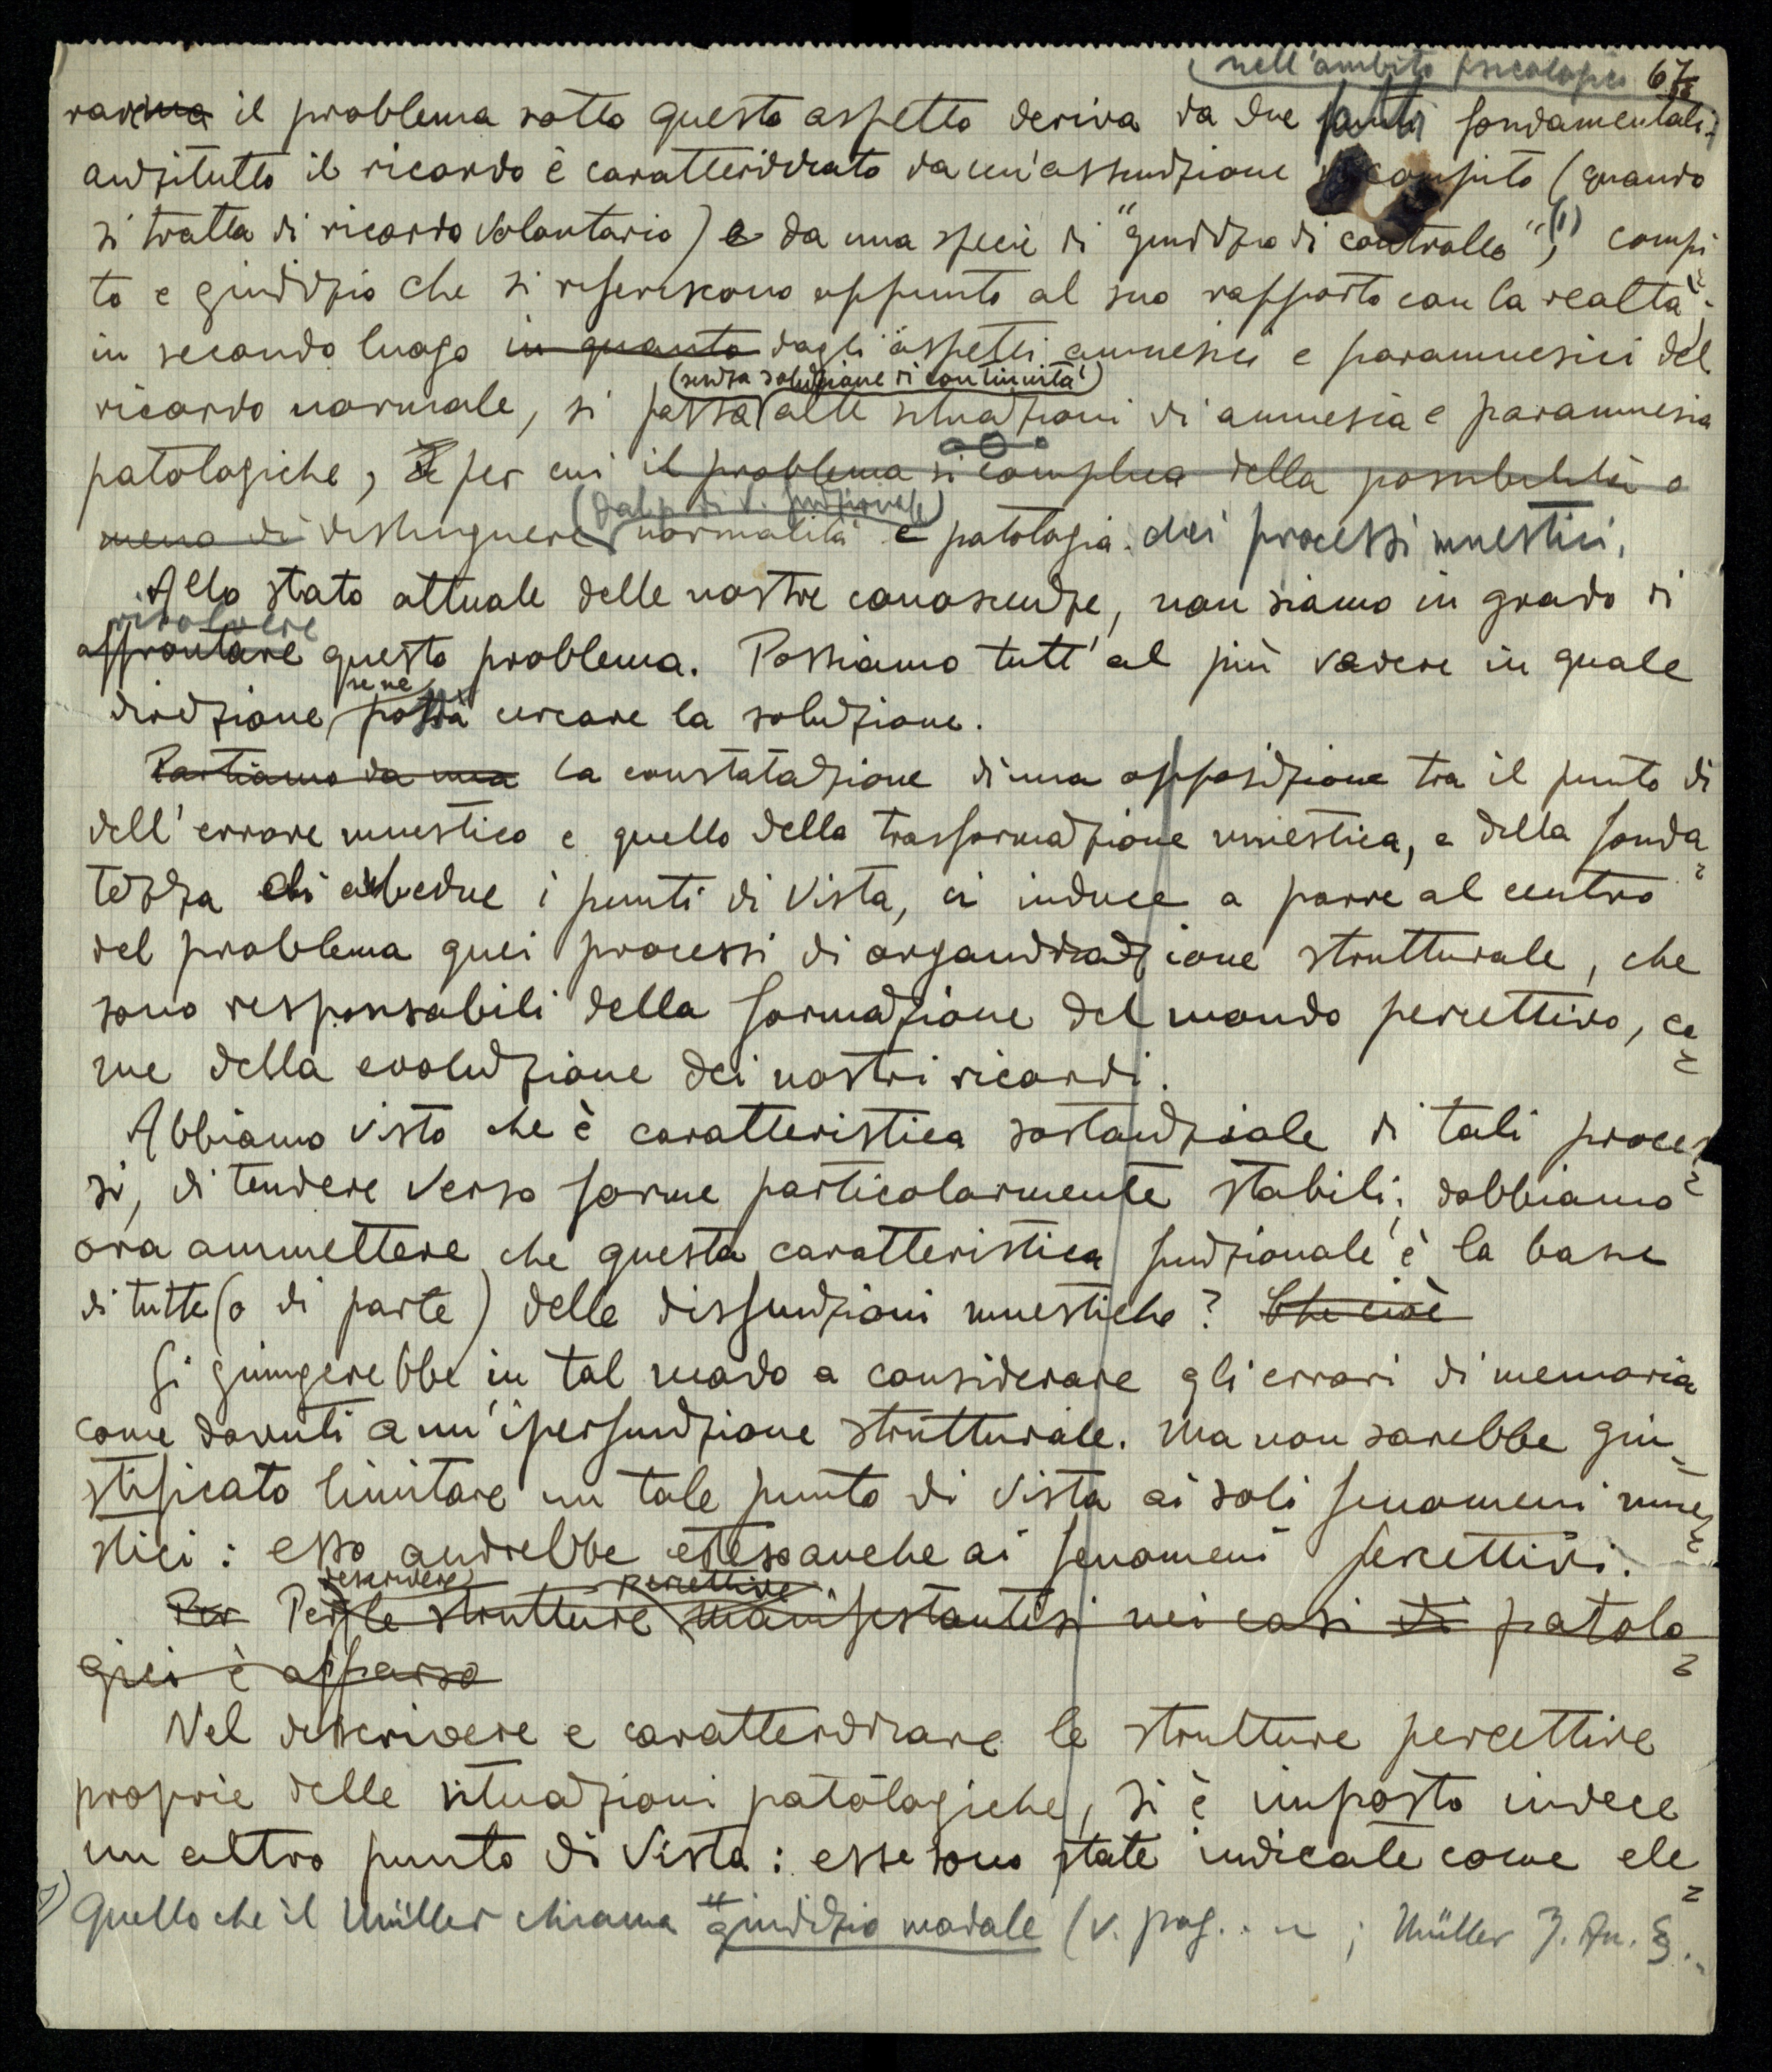 nell'ambito psicologico 67
rare il problema sotto questo aspetto deriva da due fatti fondamentali:
anzitutto il ricordo è caratterizzato da un'assunzione di compito (quando
si tratta di ricordo volontario) e da una specie di "giudizio di controllo",(1) compi
to e giudizio che si riferiscono appunto al suo rapporto con la realtà;
in secondo luogo in quanto dagli aspetti amnesici e paramnesici del
(senza soluzione di continuità)
ricordo normale, si passa alle situazioni di amnesia e paramnesia
patologiche, per cui il problema si complica della possibilità o
(dal p. di v. funzionale)
meno di distinguere normalità e patologia dei processi mnestici.
Allo stato attuale delle nostre conoscenze, non siamo in grado di
risolvere
affrontare questo problema. Possiamo tutt'al più vedere in quale
se ne
direzione possa cercare la soluzione.
Partiamo da una La constatazione di una opposizione tra il punto di
dell'errore mnestico e quello della trasformazione mnestica, e della fonda
tezza di ambedue i punti di vista, ci induce a porre al centro
del problema quei processi di organizzazione strutturale, che
sono responsabili della formazione del mondo percettivo, co
me della evoluzione dei nostri ricordi.
Abbiamo visto che è caratteristica sostanziale di tali proces
si, di tendere verso forme particolarmente stabili; dobbiamo
ora ammettere che questa caratteristica funzionale è la base
di tutte (o di parte) delle disfunzioni mnestiche? Che cioè
Si giungerebbe in tal modo a considerare gli errori di memoria
come dovuti a un'iperfunzione strutturale. Ma non sarebbe giu
stificato limitare un tale punto di vista ai soli fenomeni mne
stici: esso andrebbe esteso anche ai fenomeni percettivi.
descrivere percettive
Per Per le strutture manifestantesi nei casi di patolo
gici è apparso
Nel descrivere e caratterizzare le strutture percettive
proprie delle situazioni patologiche, si è imposto invece
un altro punto di vista: esse sono state indicate come ele
1) Quello che il Müller chiama "giudizio modale (v. pag. .. ; Müller J. An. § ..